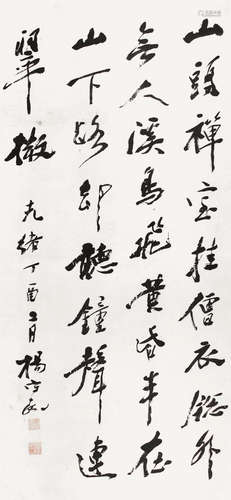 山頭禪室挂僧衣窗外
無人溪鳥飛黃昏半在
山下路卻聽鐘聲連
翠微
光緒丁酉 月楊守敬